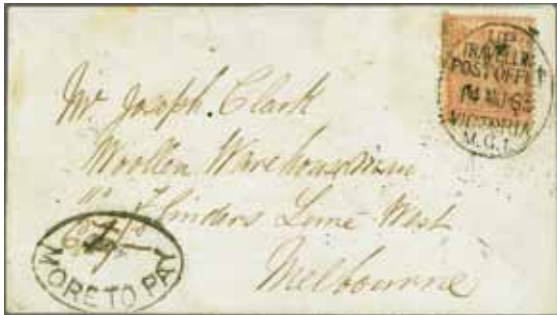 UP
TRAVELLING
POST OFFICE
VICTORIA
M.G.1.
Mr. Joseph Clark
Woollen Warehouseman
Flinders Lane West
Melbourne
MORE TO PAY